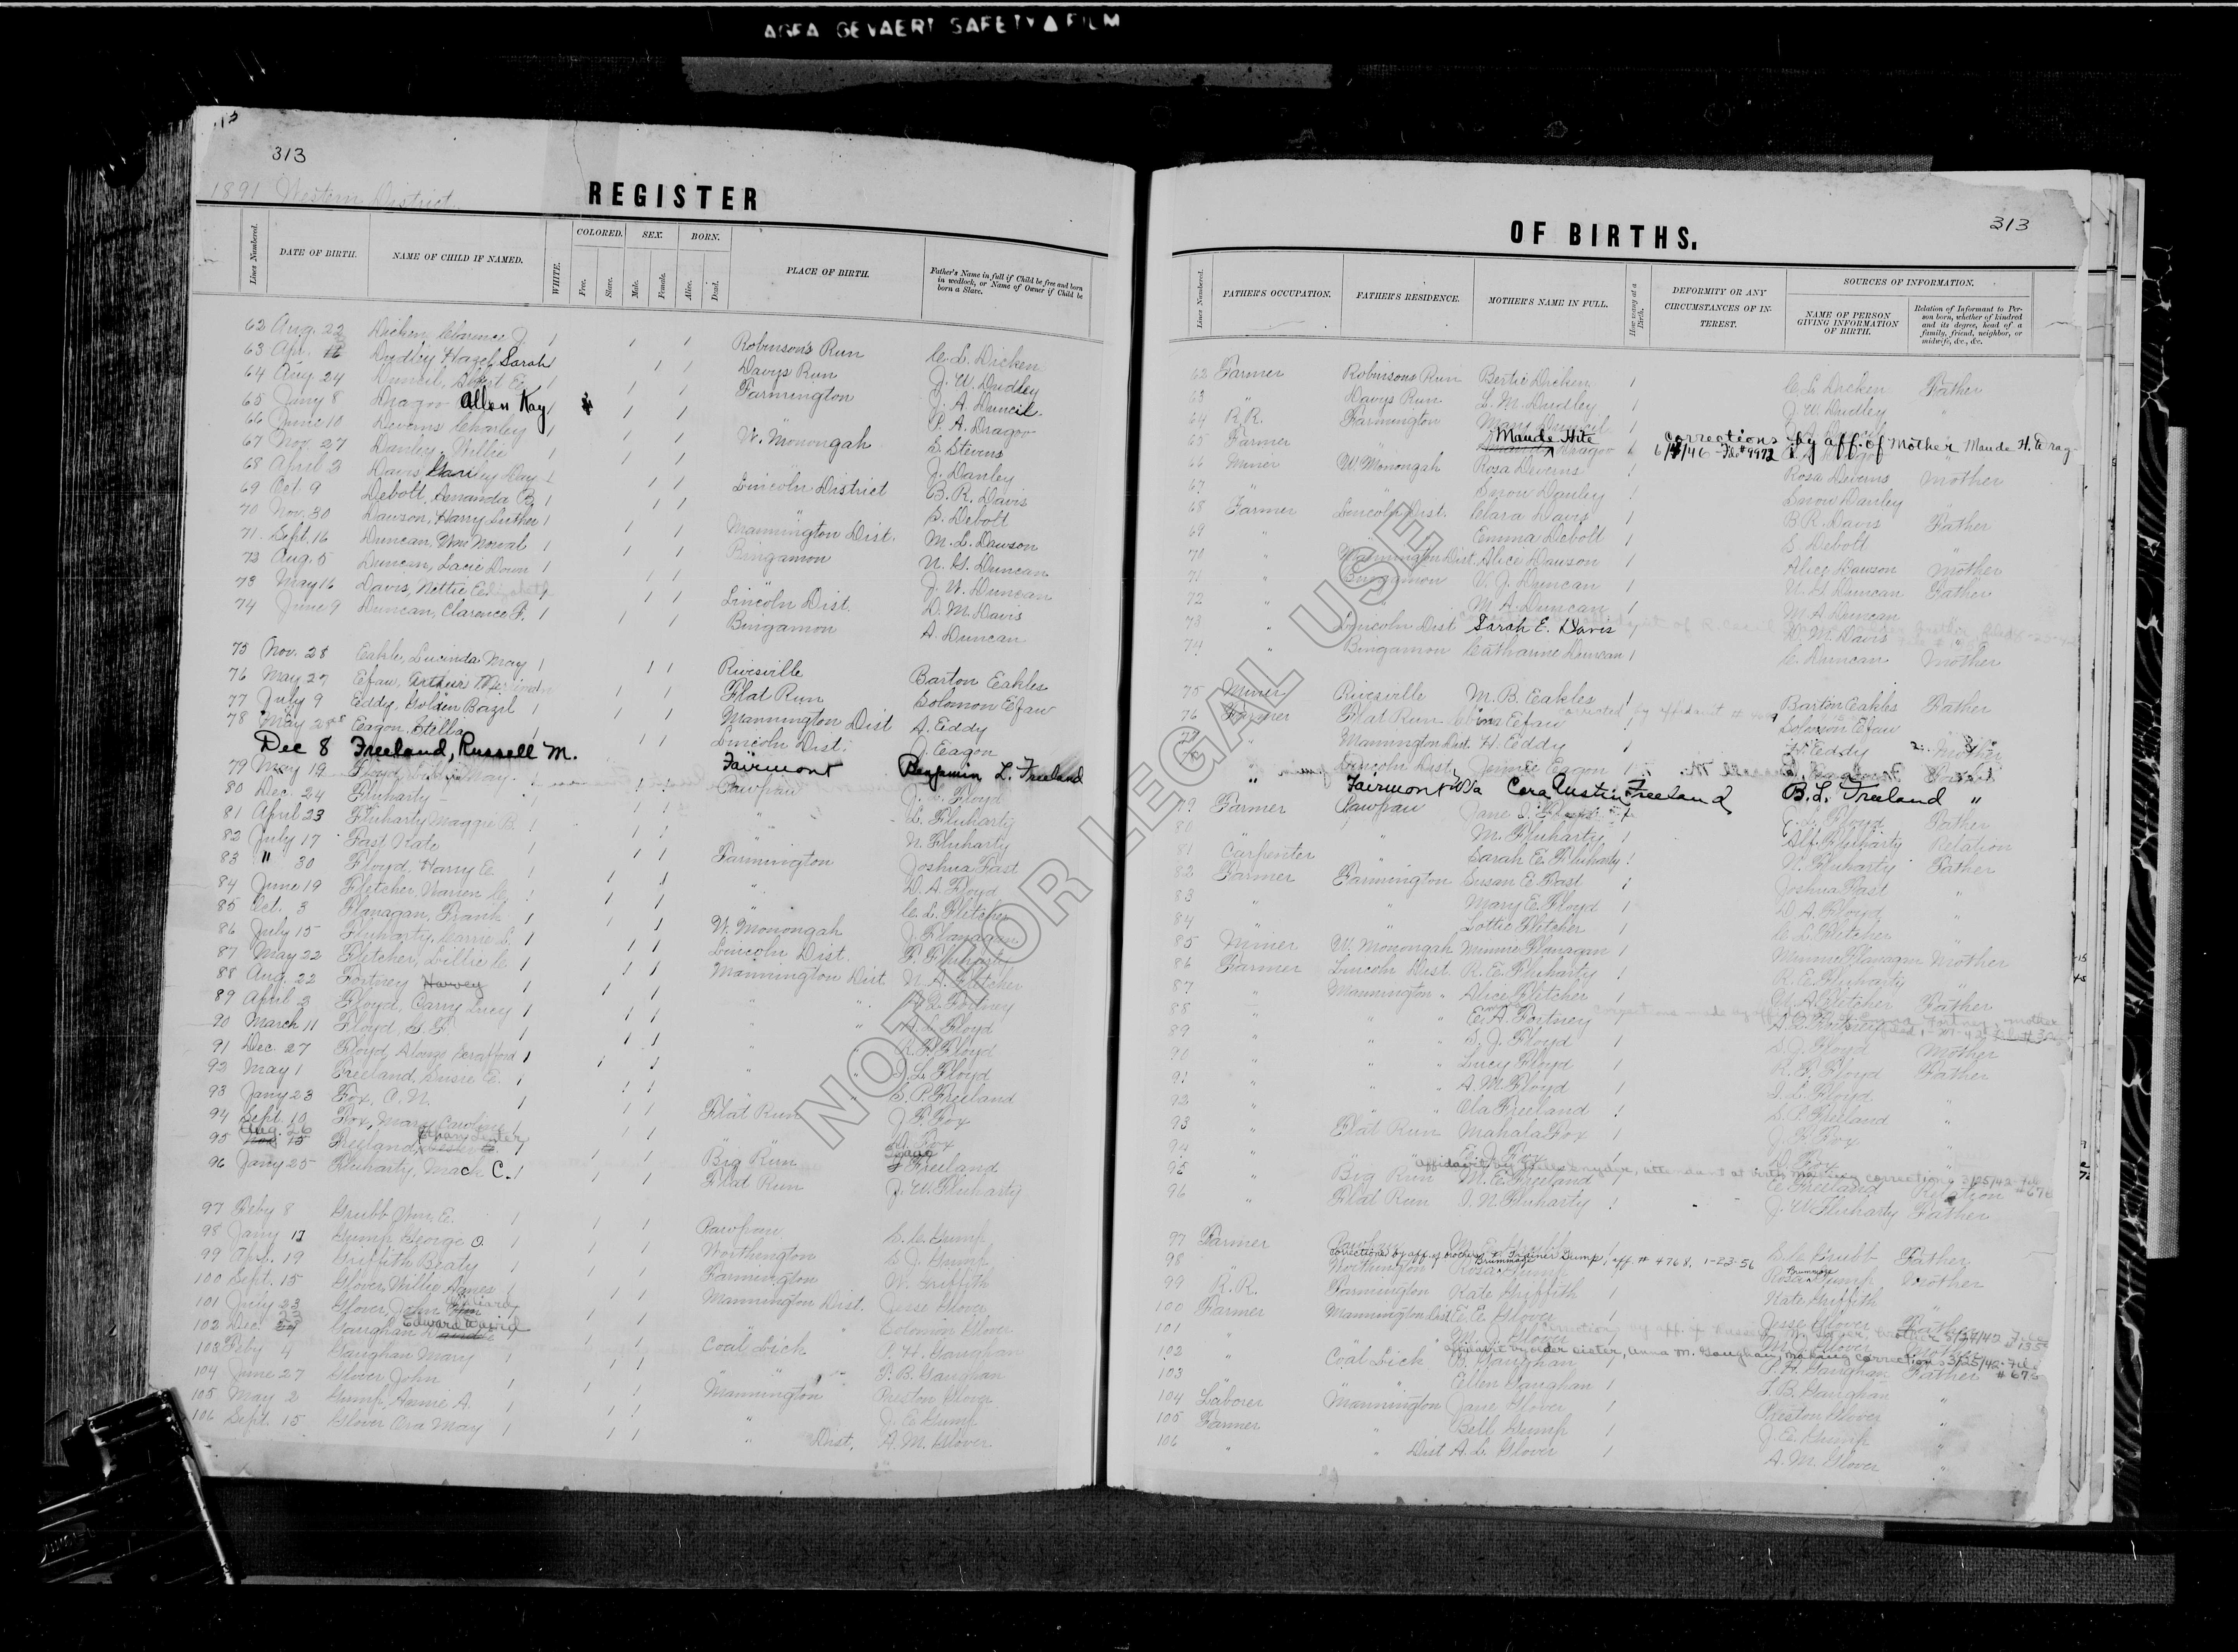 AGFA GEVAERT SAFETY FILM
313
1891 Western District
REGISTER
Lines Numbered.
DATE OF BIRTH.
NAME OF CHILD IF NAMED.
WHITE.
COLORED.
Free.
Slave.
SEX.
Male.
Female.
BORN.
Alive.
Dead.
PLACE OF BIRTH.
Father's Name in full if Child be free and born in wedlock, or Name of Owner if Child be born a Slave.
62 Aug. 22 Dicken, Clarence J. Robinson's Run C. L. Dicken
63 Apr. Dudley Hazel Sarah Davys Run J. W. Dudley
64 Aug 24 Duncil, E. Farmington J. A. Duncil
65 Jany 8 Dragoo Allen Kay P. A. Dragoo
66 June 10 Deverns Charley W. Monongah S. Stevens
67 Nov. 27 Danley, Willie J. Danley
68 April 2 Davis, Gay Lincoln District B. R. Davis
69 Oct 9 Debolt, Amanda B. " S. Debolt
70 Nov. 30 Dawson, Harry Luther Mannington Dist. M. L. Dawson
71 Sept. 16 Duncan, Wm Norval Bingamon N. G. Duncan
72 Aug. 5 Duncan, Lacie Dawn " J. W. Duncan
73 May 16 Davis, Nettie Elizabeth Lincoln Dist. D. M. Davis
74 June 9 Duncan, Clarence F. Bingamon A. Duncan
75 Nov. 28 Eakle, Lucinda May Rivesville Barton Eakles
76 May 27 Efaw, Arthur Flat Run Solomon Efaw
77 July 9 Eddy, Golden Bazil Mannington Dist A. Eddy
78 May 28 Eagon, Stella Lincoln Dist. J. Eagon
Dec 8 Freeland, Russell M. Fairmont Benjamin L. Freeland
79 May 19 Floyd, May Pawpaw Floyd
80 Dec. 24 Fluharty " L. Fluharty
81 April 23 Fluharty Maggie B. " N. Fluharty
82 July 17 Fast Kate Farmington Joshua Fast
83 " 30 Floyd, Harry E. " D. A. Floyd
84 June 19 Fletcher, Warren C. " C. L. Fletcher
85 Oct. 3 Flanagan, Frank W. Monongah J. Flanagan
86 July 15 Fluharty, Carrie L. Lincoln Dist. F. Fluharty
87 May 22 Fletcher, Lillie C. Mannington Dist. N. A. Fletcher
88 Aug. 22 Fortney Harvey " " A. L. Fortney
89 April 2 Floyd, Carry Lucy " " Floyd
90 March 11 Floyd, S. F. " " R. F. Floyd
91 Dec. 27 Floyd, Alonzo Crafford " " L. Floyd
92 May 1 Freeland, Susie E. " " S. P. Freeland
93 Jany 23 Fox, O. N. Flat Run J. F. Fox
94 Sept. 10 Fox, Mary Caroline " D. Fox
95 Aug. 26 Nov 15 Freeland, Big Run Isaac Freeland
96 Jany 25 Fluharty, Mack C. Flat Run J. W. Fluharty
97 Feby 8 Grubb Wm. E. Pawpaw
98 Jany 17 Gump George O. Worthington S. J. Gump
99 Apr. 19 Griffith Beaty Farmington W. Griffith
100 Sept. 15 Glover Willie Agnes Mannington Dist. Jesse Glover
101 July 23 Glover, John " " Coloman Glover
102 Dec. Gaughan Edward David Coal Lick P. H. Gaughan
103 Feby 4 Gaughan Mary " P. B. Gaughan
104 June 27 Glover John Mannington Preston Glover
105 May 2 Gump, Annie A. " J. E. Gump
106 Sept. 15 Glover Ora May " Dist. A. M. Glover
OF BIRTHS.
313
Lines Numbered.
FATHER'S OCCUPATION.
FATHER'S RESIDENCE.
MOTHER'S NAME IN FULL.
How many at a Birth.
DEFORMITY OR ANY CIRCUMSTANCES OF INTEREST.
SOURCES OF INFORMATION.
NAME OF PERSON GIVING INFORMATION OF BIRTH.
Relation of Informant to Person born, whether of kindred and its degree, head of a family, friend, neighbor, or midwife, &c., &c.
62 Farmer Robinsons Run Bertie Dicken 1 C. L. Dicken Father
63 " Davys Run L. M. Dudley 1 J. W. Dudley "
64 R.R. Farmington Mary Duncil 1 J. A. Duncil
65 Farmer " Maude Hite Dragoo corrections by aff. of Mother Maude H. Drag-
6/ /46 File # 9972
66 Miner W. Monongah Rosa Deverns 1 Rosa Deverns Mother
67 " " Snow Danley 1 Snow Danley
68 Farmer Lincoln Dist. Clara Davis 1 B. R. Davis Father
69 " Emma Debolt 1 S. Debolt
70 " Mannington Dist. Alice Dawson 1 Alice Dawson Mother
71 " Bingamon V. J. Duncan 1 N. G. Duncan Father
72 " M. A. Duncan 1 M. A. Duncan
73 " Lincoln Dist Sarah E. Davis D. M. Davis
74 " Bingamon Catharine Duncan 1 C. Duncan Mother
75 Miner Rivesville M. B. Eakles 1 Barton Eakles Father
76 Farmer Flat Run Efaw corrected by affidavit Solomon Efaw
77 " Mannington Dist. H. Eddy 1 H. Eddy Mother
78 " Lincoln Dist. Jennie Eagon 1
" Fairmont W Va Cora Austin Freeland B. L. Freeland "
79 Farmer Pawpaw Jane Floyd Floyd Father
80 " " M. Fluharty 1 Alf. Fluharty Relation
81 Carpenter " Sarah E. Fluharty 1 N. Fluharty Father
82 Farmer Farmington Susan E. Fast 1 Joshua Fast "
83 " " Mary E. Floyd 1 D. A. Floyd "
84 " " Lottie Fletcher 1 C. L. Fletcher "
85 Miner W. Monongah Minnie Flanagan 1 Minnie Flanagan Mother
86 Farmer Lincoln Dist. R. E. Fluharty 1 R. E. Fluharty "
87 " Mannington " Alice Fletcher 1 N. A. Fletcher Father
88 " " " E. A. Fortney A. L. Fortney
89 " " " S. J. Floyd 1 S. J. Floyd Mother
90 " " " Lucy Floyd 1 R. F. Floyd Father
91 " " " A. M. Floyd 1 L. Floyd "
92 " " " Ola Freeland 1 S. P. Freeland "
93 " Flat Run Mahala Fox 1 J. F. Fox "
94 " " E. J. Fox D. Fox "
affidavit by attendant at birth making corrections 3/25/42 File # 676
95 " Big Run M. E. Freeland E. Freeland Relation
96 " Flat Run I. N. Fluharty 1 J. W. Fluharty Father
97 Farmer Pawpaw Grubb Father
corrections by aff. of brother Gump, aff. # 4768, 1-23-56
98 " Worthington Rosa Brummage Gump Rosa Brummage Gump Mother
99 R.R. Farmington Kate Griffith 1 Kate Griffith "
100 Farmer Mannington Dist E. E. Glover 1 Jesse Glover Father
101 " " M. J. Glover M. J. Glover Mother
affidavit by older sister, Anna M. Gaughan, making corrections 3/25/42 - File # 676
102 " Coal Lick B. Gaughan 1 P. H. Gaughan Father
103 " Ellen Gaughan 1 P. B. Gaughan "
104 Laborer Mannington Jane Glover 1 Preston Glover "
105 Farmer " Bell Gump 1 J. E. Gump "
106 " " Dist A. L. Glover 1 A. M. Glover "
NOT FOR LEGAL USE